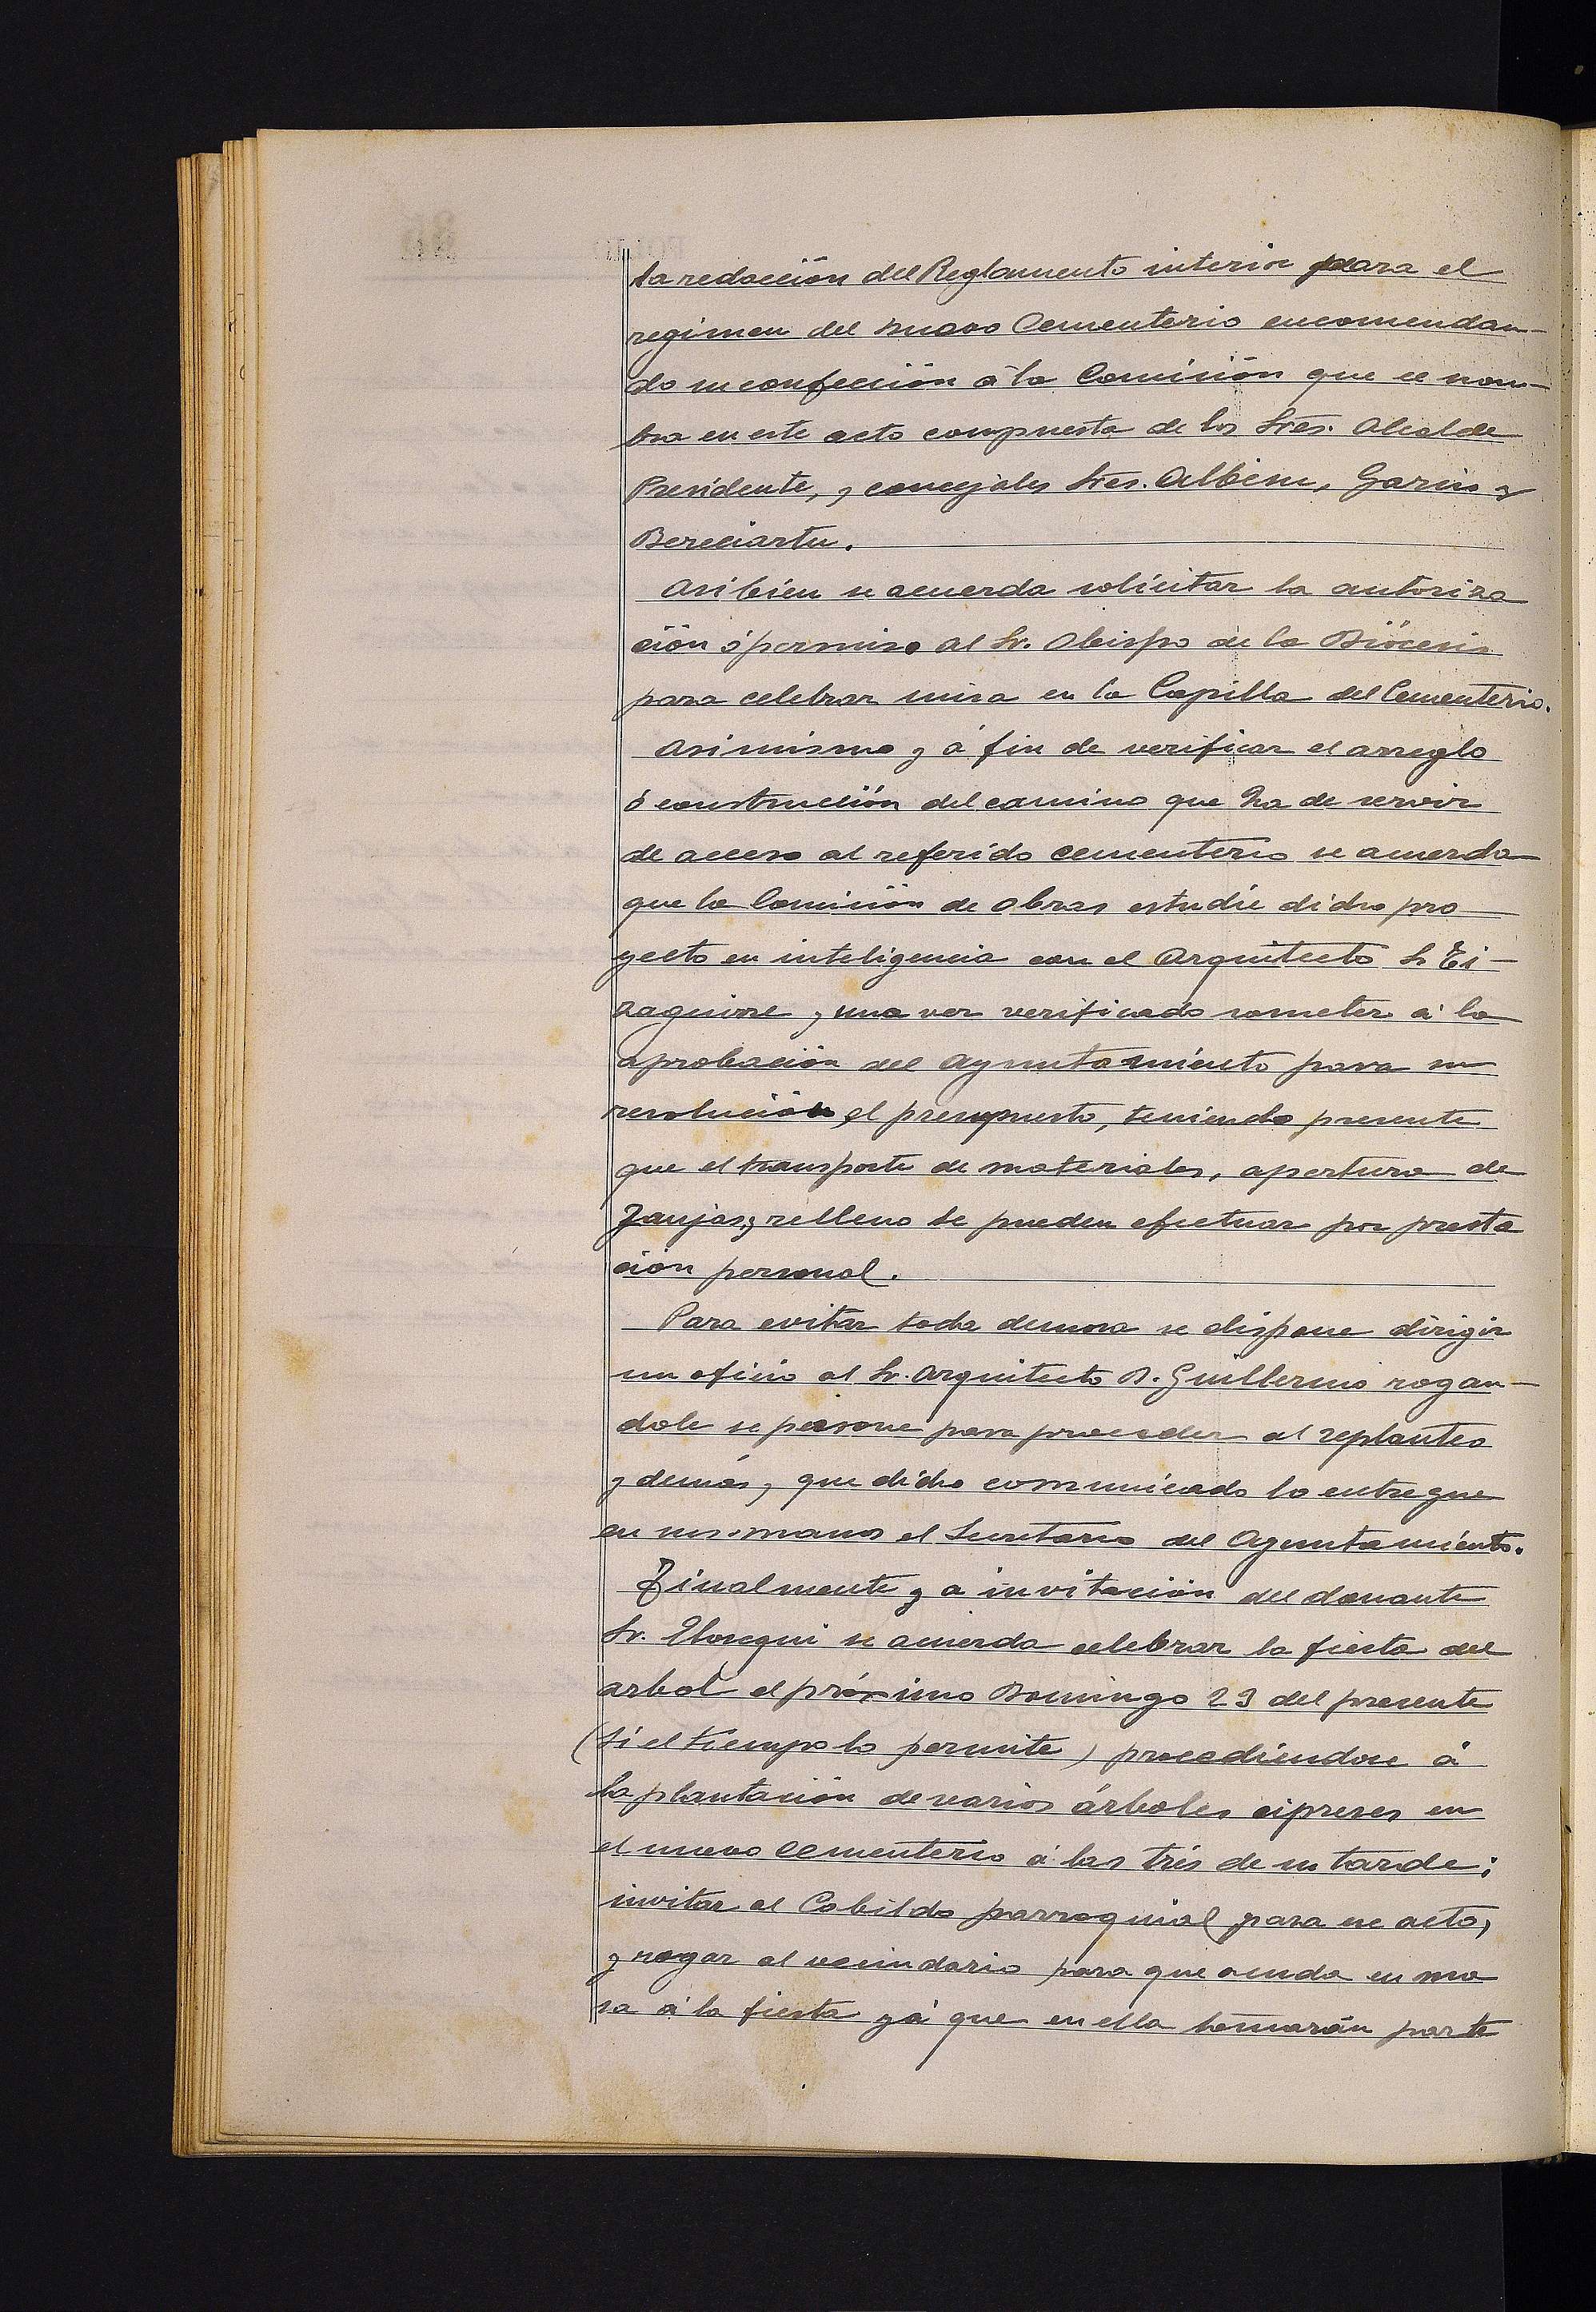 la redacción del Reglamento interior para el
regimen del nuevo Cementerio encomendan-
do su confección á la Comisión que se nom-
bra en este acto compuesta de los Sres. Alcalde
Presidente, y concejales Sres. Albisu, Garin y
Bereciartu.
Asi bien se acuerda solicitar la autoriza
ción ó permiso al Sr. Obispo de la Diócesis
para celebrar misa en la Capilla del Cementerio.
Asimismo y á fin de verificar el arreglo
ó construcción del camino que ha de servir
de acceso al referido cementerio se acuerda
que la Comisión de obras estudie dicho pro
yecto en inteligencia con el Arquitecto Sr Ei-
zaguirre y una vez verificado someter á la
aprobación del Ayuntamiento para su
resolución el presupuesto, teniendo presente
que el transporte de materiales, apertura de
Zanjas y relleno se pueden efectuar por presta
ción personal.
Para evitar toda demora se dispone dirigir
un oficio al Sr. Arquitecto D. Guillermo rogan-
dole se persone para proceder al replanteo
y demás, que dicho comunicado lo entregue
en sus manos el Secretario del Ayuntamiento.
Finalmente y a invitación del donante
Sr. Elosegui se acuerda celebrar la fiesta del
arbol el próximo Domingo 23 del presente
(si el tiempo lo permite) procediendose á
la plantación de varios árboles cipreses en
el nuevo cementerio á las trés de su tarde;
invitar al Cabildo parroquial para ese acto,
y rogar al vecindario para que acuda en ma
sa á la fiesta yá que en ella tomarán parte